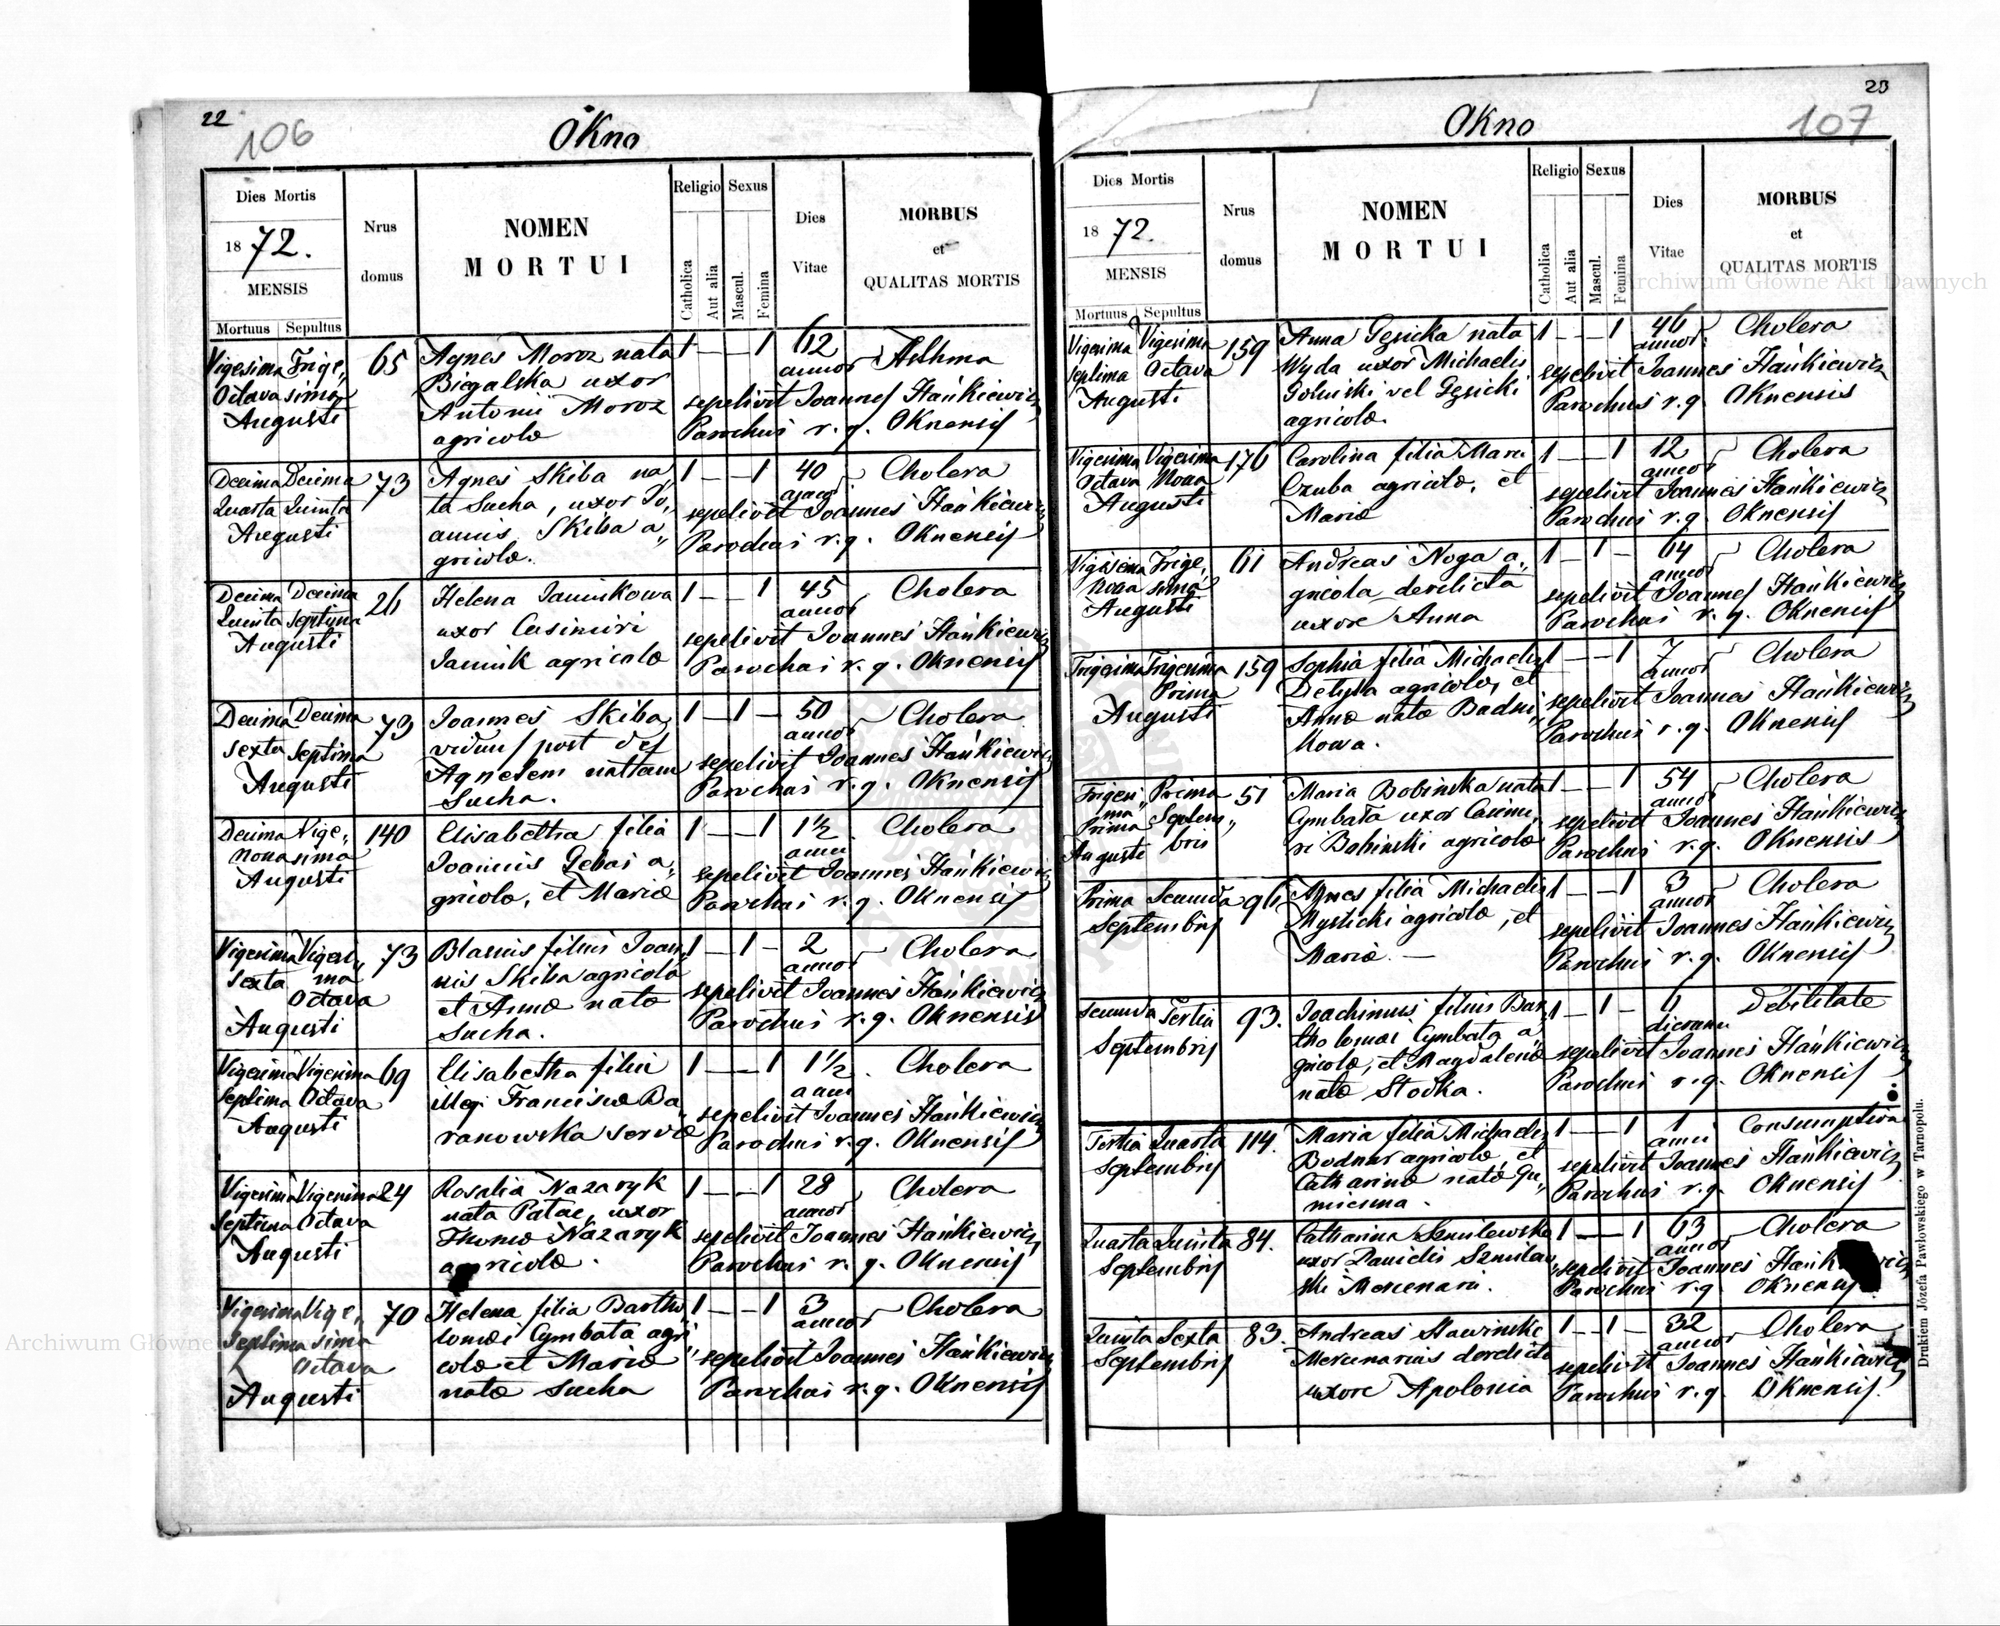 22
106
Okno
Dies Mortis
1872.
MENSIS
Mortuus | Sepultus
Nrus
domus
NOMEN
MORTUI
Religio
Catholica
Aut alia
Sexus
Mascul.
Femina
Dies
Vitae
MORBUS
et
QUALITAS MORTIS
Vigesima Trige„ 65 Agnes Moroz nata 1 — — 1 62 Asthma
Octava sima Biegalska uxor annor
Augusti Antonii Moroz sepelivit Joannes Hańkiewicz
agricolæ Parochus r. g. Oknensis
Decima Decima 73 Agnes Skiba na„ 1 — — 1 40 Cholera
Quarta Quinta ta Sucha, uxor Jo„ annor
Augusti annis Skiba a„ sepelivit Joannes Hańkiewicz
gricolæ. Parochus r. g. Oknensis
Decima Decima 26 Helena Jaminkowa 1 — — 1 45 Cholera
Quinta Septima uxor Casimiri annor
Augusti Jamink agricolæ sepelivit Joannes Hańkiewicz
Parochus r. g. Oknensis
Decima Decima 73 Joannes Skiba 1 — 1 — 50 Cholera
Sexta Septima viduus post def annor
Augusti Agnetem nattam sepelivit Joannes Hańkiewicz
Sucha. Parochus r. g. Oknensis
Decima Vige„ 140 Elisabetha filia 1 — — 1 1½ Cholera
nona sima Joannis Gebas a„ anni
Augusti gricolæ, et Mariæ sepelivit Joannes Hańkiewicz
Parochus r. g. Oknensis
Vigesima Vigesi„ 73 Blasius filius Joan„ 1 — 1 — 2 Cholera
Sexta ma nis Skiba agricolæ annor
Octava et Annæ natæ sepelivit Joannes Hańkiewicz
Augusti Sucha. Parochus r. g. Oknensis
Vigesima Vigesima 69 Elisabetha filia 1 — — 1 1½ Cholera
Septima Octava illeg. Franciscæ Ba„ anni
Augusti ranowska servæ sepelivit Joannes Hańkiewicz
Parochus r. g. Oknensis
Vigesima Vigesima 24 Rosalia Nazaryk 1 — — 1 28 Cholera
Septima Octava nata Patac, uxor annor
Augusti Thomæ Nazaryk sepelivit Joannes Hańkiewicz
agricolæ. Parochus r. g. Oknensis
Vigesima Vige„ 70 Helena filia Bartho„ 1 — — 1 3 Cholera
Septima sima lomæi Cymbata agri„ annor
Octava colæ et Mariæ sepelivit Joannes Hańkiewicz
Augusti natæ Sucha Parochus r. g. Oknensis
23
107
Okno
Dies Mortis
1872.
MENSIS
Mortuus | Sepultus
Nrus
domus
NOMEN
MORTUI
Religio
Catholica
Aut alia
Sexus
Mascul.
Femina
Dies
Vitae
MORBUS
et
QUALITAS MORTIS
Vigesima Vigesima 159 Anna Gęsicka nata 1 — — 1 46 Cholera
Septima Octava Wyda uxor Michaelis annor
Augusti vel Gęsicki sepelivit Joannes Hańkiewicz
agricolæ. Parochus r. g. Oknensis
Vigesima Vigesima 176 Carolina filia Marci 1 — — 1 12 Cholera
Octava Nona Czuba agricolæ, et annor
Augusti Mariæ sepelivit Joannes Hańkiewicz
Parochus r. g. Oknensis
Vigesima Trige„ 61 Andreas Noga a„ 1 — 1 — 64 Cholera
Nona sima gricola derelicta annor
Augusti uxore Anna sepelivit Joannes Hańkiewicz
Parochus r. g. Oknensis
Trigesima Trigesima 159 Sophia filia Michaelis 1 — — 1 7 Cholera
Prima Detyna agricolæ, et annor
Augusti Annæ natæ Badni„ sepelivit Joannes Hańkiewicz
kowa. Parochus r. g. Oknensis
Trigesi„ Prima 51 Maria Bobinska nata 1 — — 1 54 Cholera
ma Septem„ Cymbata uxor Casimi„ annor
Prima bris ri Bobinski agricolæ sepelivit Joannes Hańkiewicz
Augusti Parochus r. g. Oknensis
Prima Secunda 96 Agnes filia Michaelis 1 — — 1 3 Cholera
Septembris Mysticki agricolæ, et annor
Mariæ. — sepelivit Joannes Hańkiewicz
Parochus r. g. Oknensis
Secunda Tertia 93. Joachimus filius Bar„ 1 — 1 — 6 Debilitate
Septembris tholomæi Cymbata a„ dierum
gricolæ, et Magdalenæ sepelivit Joannes Hańkiewicz
natæ Stocka. Parochus r. g. Oknensis
Tertia Quarta 114. Maria filia Michaelis 1 — — 1 1 Consumptiva
Septembris Bodnar agricolæ et anni
Catharinæ natæ Gu„ sepelivit Joannes Hańkiewicz
mienna. Parochus r. g. Oknensis
Quarta Quinta 84. Catharina Szmilewska 1 — — 1 63 Cholera
Septembris uxor Danielis Szmilew„ annor
ski Mercenarii. sepelivit Joannes
Parochus r. g. Oknensis
Quinta Sexta 83. Andreas Stawinski 1 — 1 — 32 Cholera
Septembris Mercenarius derelicta annor
uxore Apolonia sepelivit Joannes Hańkiewicz
Parochus r. g. Oknensis
Drukiem Józefa Pawłowskiego w Tarnopolu.
Archiwum Główne Akt Dawnych
Archiwum Główne